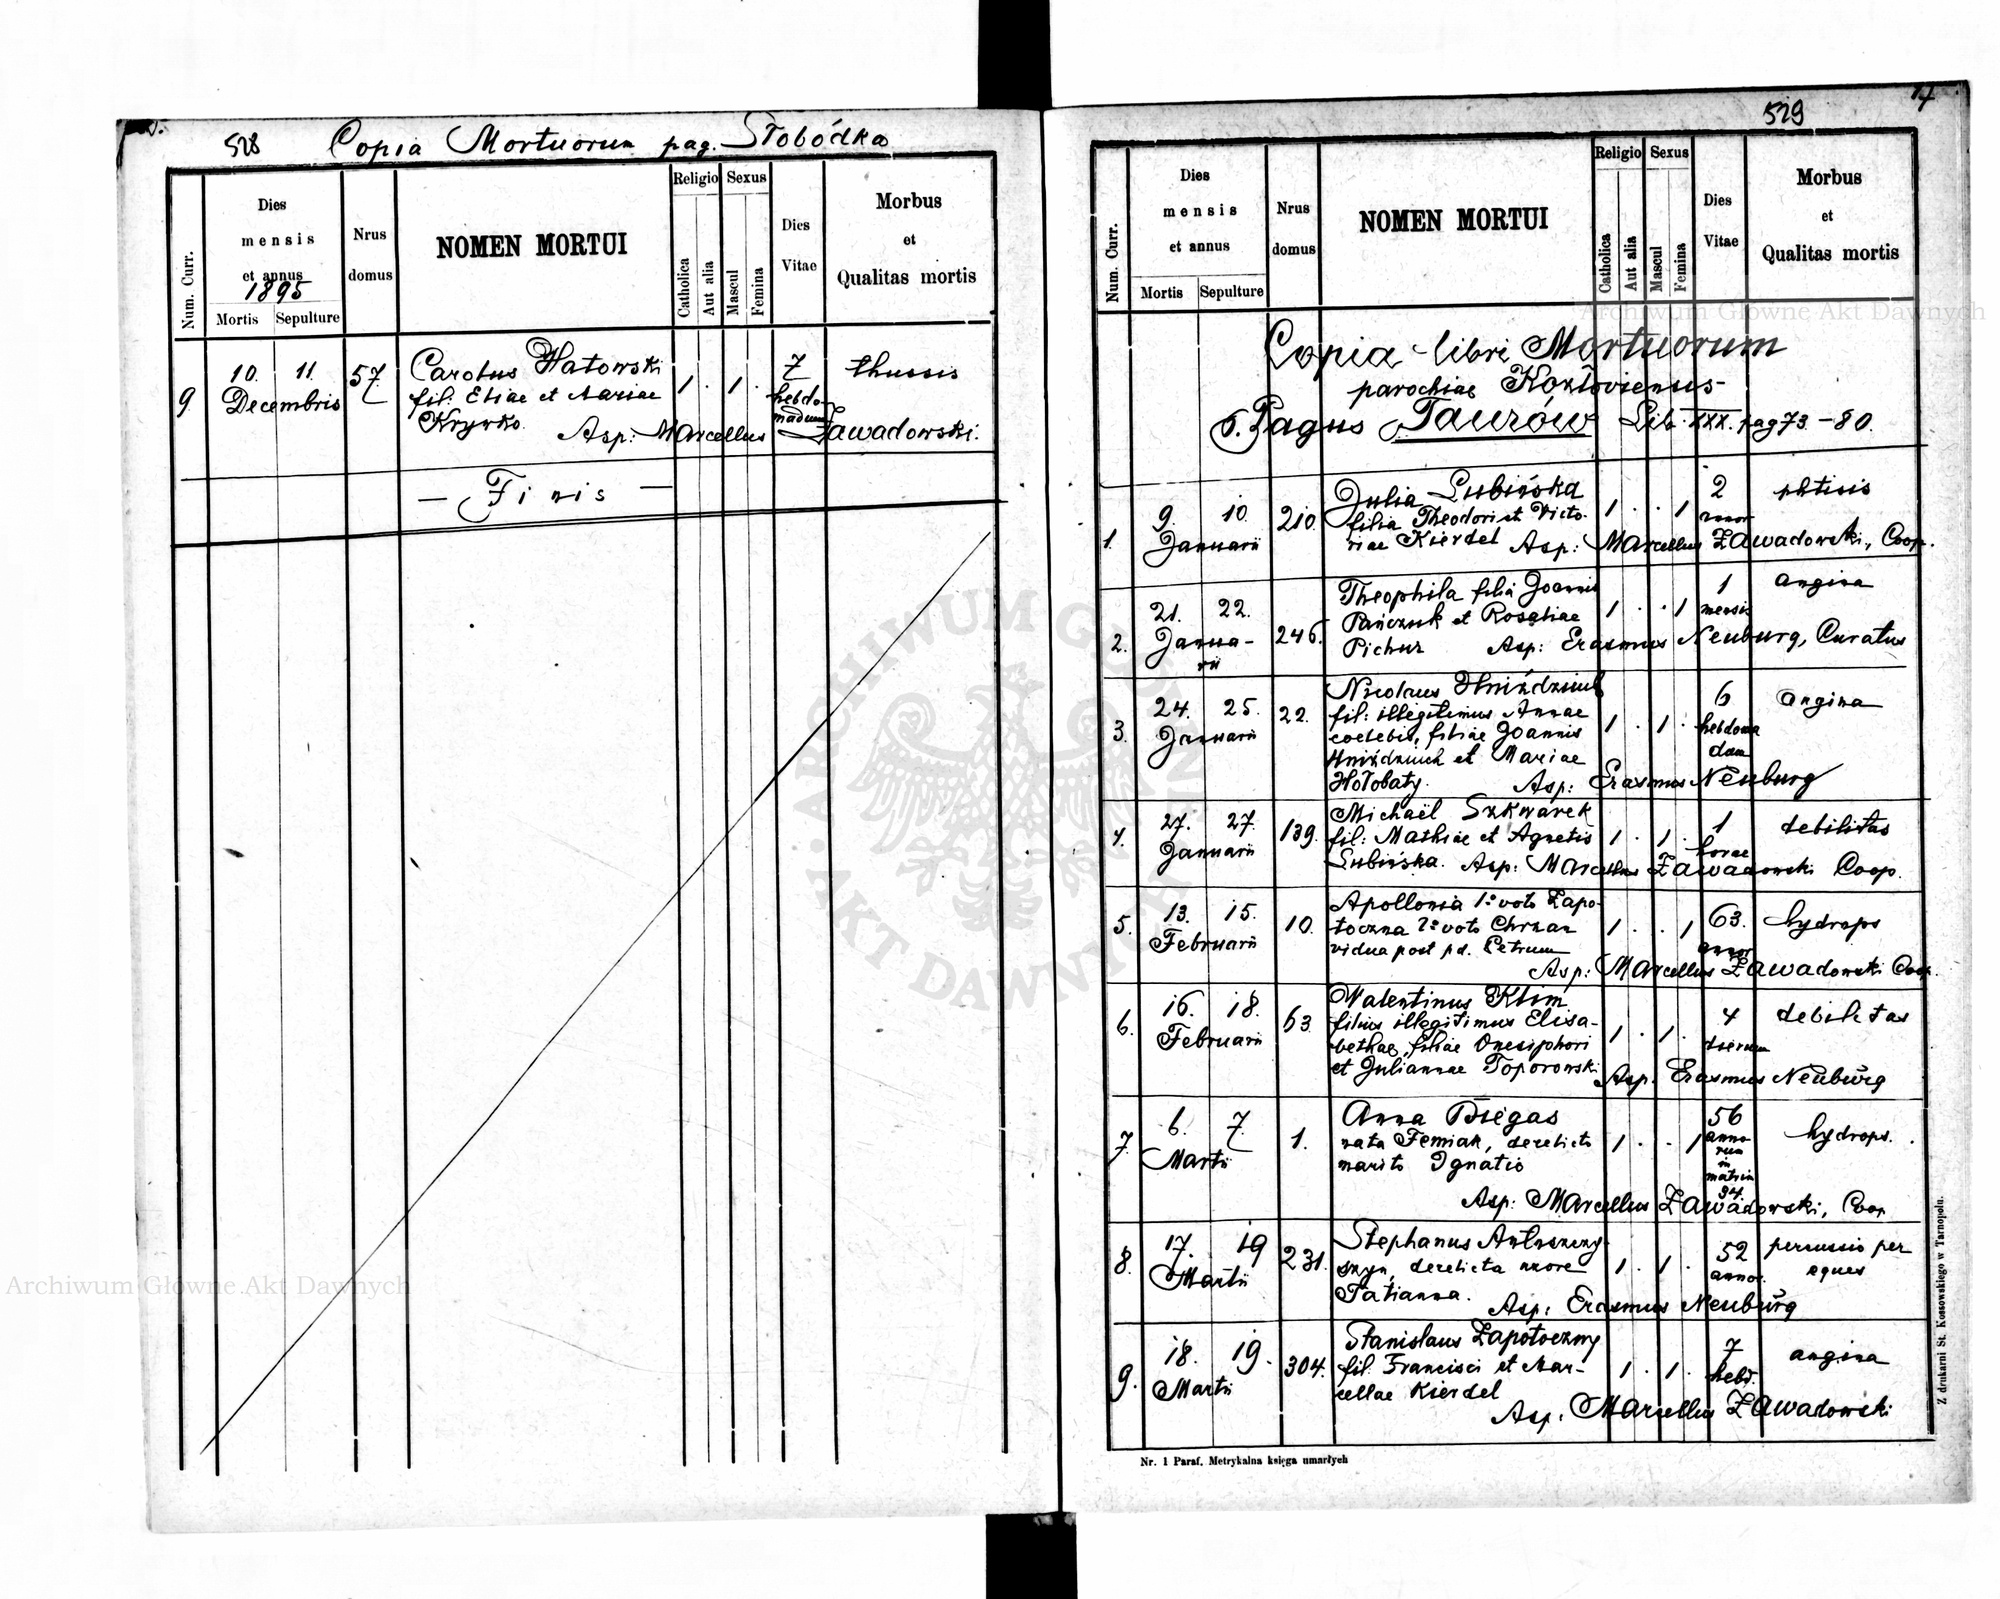 528 Copia Mortuorum pag. Słobódka
Num. Curr.
Dies
mensis
et annus
1895
Mortis Sepulture
Nrus
domus
NOMEN MORTUI
Religio Sexus
Catholica
Aut alia
Mascul
Femina
Dies
Vitae
Morbus
et
Qualitas mortis
9. 10. 11. Decembris 57.
Carolus Hatowski
fil: Eliae et Mariae
Krywko.
1 . 1 .
7
hebdo-
madum
thussis
Asp: Marcellus Zawadowski.
— Finis —
529
Num. Curr.
Dies
mensis
et annus
Mortis Sepulture
Nrus
domus
NOMEN MORTUI
Religio Sexus
Catholica
Aut alia
Mascul
Femina
Dies
Vitae
Morbus
et
Qualitas mortis
Copia libri Mortuorum
parochiae Kozłoviensis
Pagus Taurów Lib. XXX. pag 73 - 80.
1. 9. 10. Januarii 210.
Julia Lubińska
filia Theodori et Victo-
riae Kierdel
1 . . 1
2
annor
phtisis
Asp: Marcellus Zawadowski, Coop.
2. 21. 22. Janua-
rii
246.
Theophila filia Joannis
Pańczuk et Rosaliae
Pichur
1 . . 1
1
mensis
angina
Asp: Erasmus Neuburg, Curatus
3. 24. 25. Januarii 22.
Nicolaus Hniździuch
fil: illegitimus Annae
coelebis, filiae Joannis
Hniździuch et Mariae
Hołobaty.
1 . 1 .
6
hebdoma
dum
angina
Asp: Erasmus Neuburg
4. 27. 27. Januarii 139.
Michaël Szkwarek
fil: Mathiae et Agnetis
Lubińska.
1 . 1 .
1
horae
debilitas
Asp: Marcellus Zawadowski Coop.
5. 13. 15. Februarii 10.
Apollonia 1º voto Zapo-
toczna 2º voto Chrzan
vidua post pd. Petrum
1 . . 1
63.
annor
hydrops
Asp: Marcellus Zawadowski Coop.
6. 16. 18. Februarii 63
Valentinus Klim
filius illegitimus Elisa-
bethae, filiae Onesiphori
et Juliannae Toporowski
1 . 1 .
4
dierum
debilitas
Asp. Erasmus Neuburg
7. 6. 7. Martii 1.
Anna Biegas
nata Femiak, derelicto
marito Ignatio
1 . . 1
56
anno-
rum
in
matrim
34.
hydrops.
Asp: Marcellus Zawadowski, Coop
8. 17. 19 Martii 231.
Stephanus Antoszczy-
szyn, derelicta uxore
Tatianna.
1 . 1 .
52
annor.
percussio per
eques
Asp: Erasmus Neuburg
9. 18. 19. Martii 304.
Stanislaus Zapotoczny
fil. Francisci et Mar-
cellae Kierdel
1 . 1 .
7
hebd.
angina
Asp. Marcellus Zawadowski
Nr. 1 Paraf. Metrykalna księga umarłych
Z drukarni St. Kossowskiego w Tarnopolu.
Archiwum Główne Akt Dawnych
ARCHIWUM GŁÓWNE
AKT DAWNYCH
Archiwum Główne Akt Dawnych